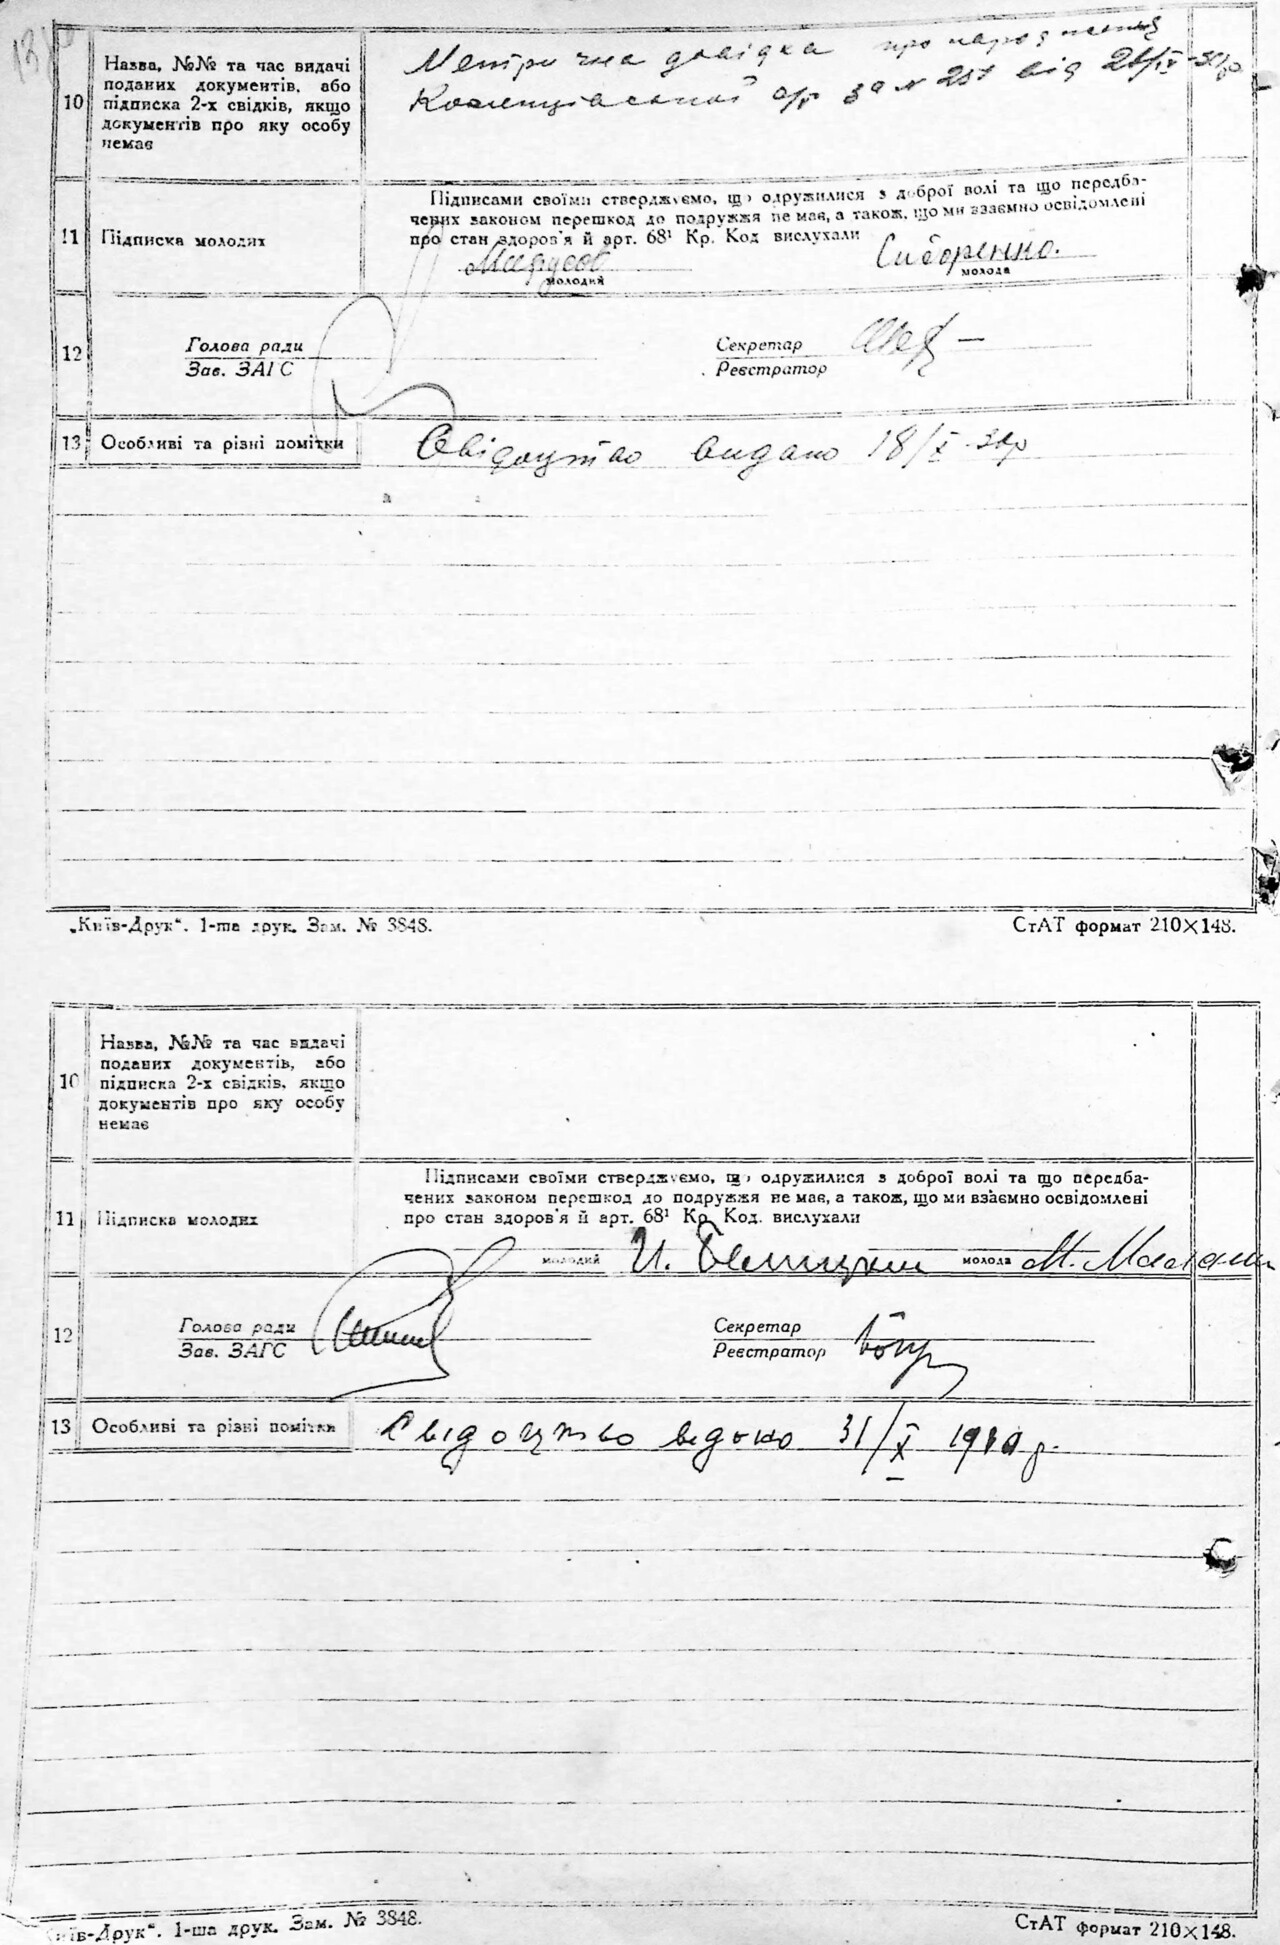 Метрична довідка про народження
10 Назва, №№ та час видачі
поданих документів, або
підписка 2-х свідків, якщо
документів про яку особу
немає
с/р за № 257 від 26/IV-30р
Підписами своїми стверджуємо, що одружилися з доброї волі та що передба-
чених законом перешкод до подружжя не має, а також, що ми взаємно освідомлені
11 Підписка молодих про стан здоров'я й арт. 68¹ Кр. Код вислухали
Сидоренко.
молодий молода
12 Голова ради Секретар
Зав. ЗАГС Реєстратор
13 Особливі та різні помітки Свідоцтво видано 18/X-30р
„Київ-Друк“. 1-ша друк. Зам. № 3848. СтАТ формат 210×148.
10 Назва, №№ та час видачі
поданих документів, або
підписка 2-х свідків, якщо
документів про яку особу
немає
Підписами своїми стверджуємо, що одружилися з доброї волі та що передба-
чених законом перешкод до подружжя не має, а також, що ми взаємно освідомлені
11 Підписка молодих про стан здоров'я й арт. 68¹ Кр. Код. вислухали
молодий И. молода М.
12 Голова ради Секретар
Зав. ЗАГС Реєстратор
13 Особливі та різні помітки Свідоцтво 31/X 1930 р.
„Київ-Друк“. 1-ша друк. Зам. № 3848. СтАТ формат 210×148.